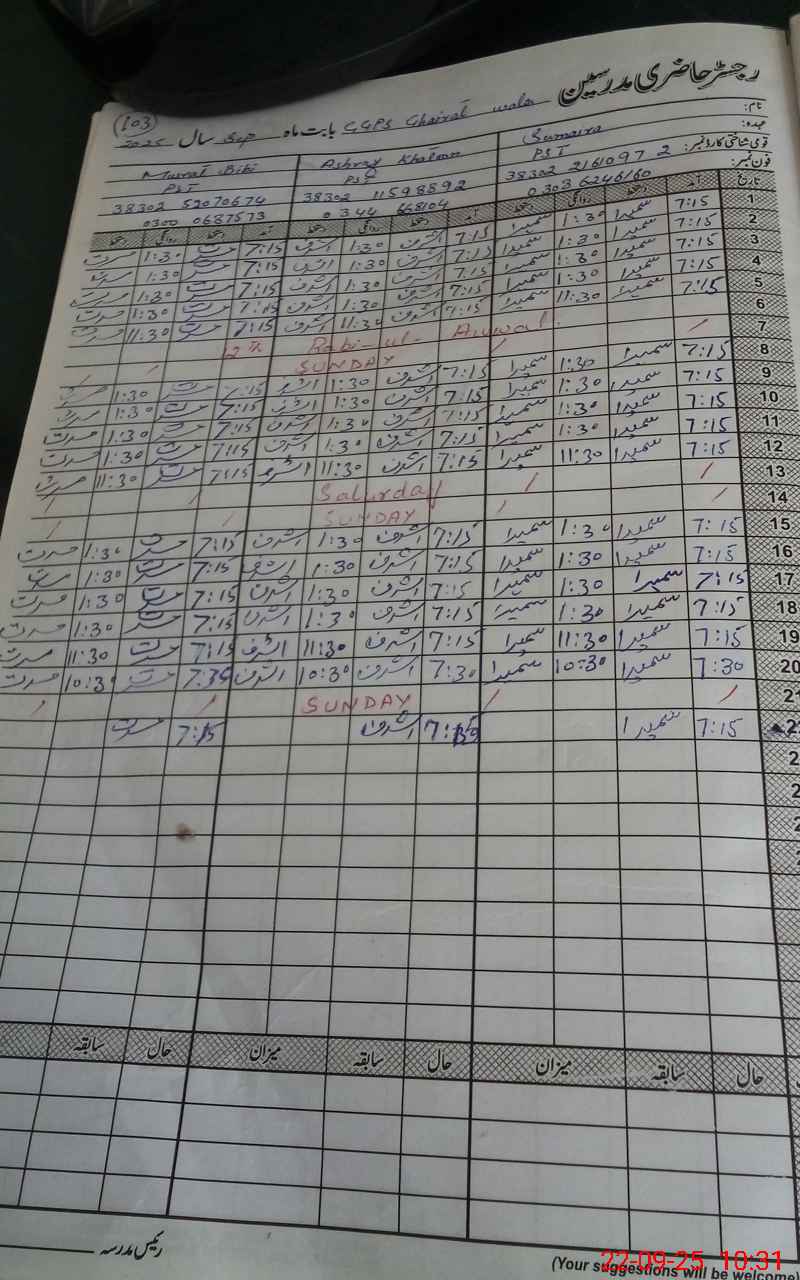 رجسٹر حاضری مدرسین
103
GGPS Ghairat wala بابت ماہ Sep سال 2025
نام: Sumaira Ashraf Khatoon Musrat Bibi
عہدہ: PST PST PST
قومی شناختی کارڈ نمبر: 38302 2161097 2 38302 11598892 38302 52070674
فون نمبر: 0303 6246160 0344 668104 0300 0687573
تاریخ آمد دستخط روانگی دستخط آمد دستخط روانگی دستخط آمد دستخط روانگی دستخط
1 7:15 سمیرا 1:30 سمیرا 7:15 اشرف 1:30 اشرف 7:15 مسرت 1:30 مسرت
2 7:15 سمیرا 1:30 سمیرا 7:15 اشرف 1:30 اشرف 7:15 مسرت 1:30 مسرت
3 7:15 سمیرا 1:30 سمیرا 7:15 اشرف 1:30 اشرف 7:15 مسرت 1:30 مسرت
4 7:15 سمیرا 1:30 سمیرا 7:15 اشرف 1:30 اشرف 7:15 مسرت 1:30 مسرت
5 7:15 سمیرا 11:30 سمیرا 7:15 اشرف 11:30 اشرف 7:15 مسرت 11:30 مسرت
6 12 Rabi-ul-Awwal
7 SUNDAY
8 7:15 سمیرا 1:30 سمیرا 7:15 اشرف 1:30 اشرف 7:15 مسرت 1:30 مسرت
9 7:15 سمیرا 1:30 سمیرا 7:15 اشرف 1:30 اشرف 7:15 مسرت 1:30 مسرت
10 7:15 سمیرا 1:30 سمیرا 7:15 اشرف 1:30 اشرف 7:15 مسرت 1:30 مسرت
11 7:15 سمیرا 1:30 سمیرا 7:15 اشرف 1:30 اشرف 7:15 مسرت 1:30 مسرت
12 7:15 سمیرا 11:30 سمیرا 7:15 اشرف 11:30 اشرف 7:15 مسرت 11:30 مسرت
13 Saturday
14 SUNDAY
15 7:15 سمیرا 1:30 سمیرا 7:15 اشرف 1:30 اشرف 7:15 مسرت 1:30 مسرت
16 7:15 سمیرا 1:30 سمیرا 7:15 اشرف 1:30 اشرف 7:15 مسرت 1:30 مسرت
17 7:15 سمیرا 1:30 سمیرا 7:15 اشرف 1:30 اشرف 7:15 مسرت 1:30 مسرت
18 7:15 سمیرا 1:30 سمیرا 7:15 اشرف 1:30 اشرف 7:15 مسرت 1:30 مسرت
19 7:15 سمیرا 11:30 سمیرا 7:15 اشرف 11:30 اشرف 7:15 مسرت 11:30 مسرت
20 7:30 سمیرا 10:30 سمیرا 7:30 اشرف 10:30 اشرف 7:30 مسرت 10:30 مسرت
21 SUNDAY
7:15 سمیرا 7:15 اشرف 7:15 مسرت
حال سابقہ میزان حال سابقہ میزان حال سابقہ
رئیس مدرسہ
(Your suggestions will be welcome)
22-09-25 10:31